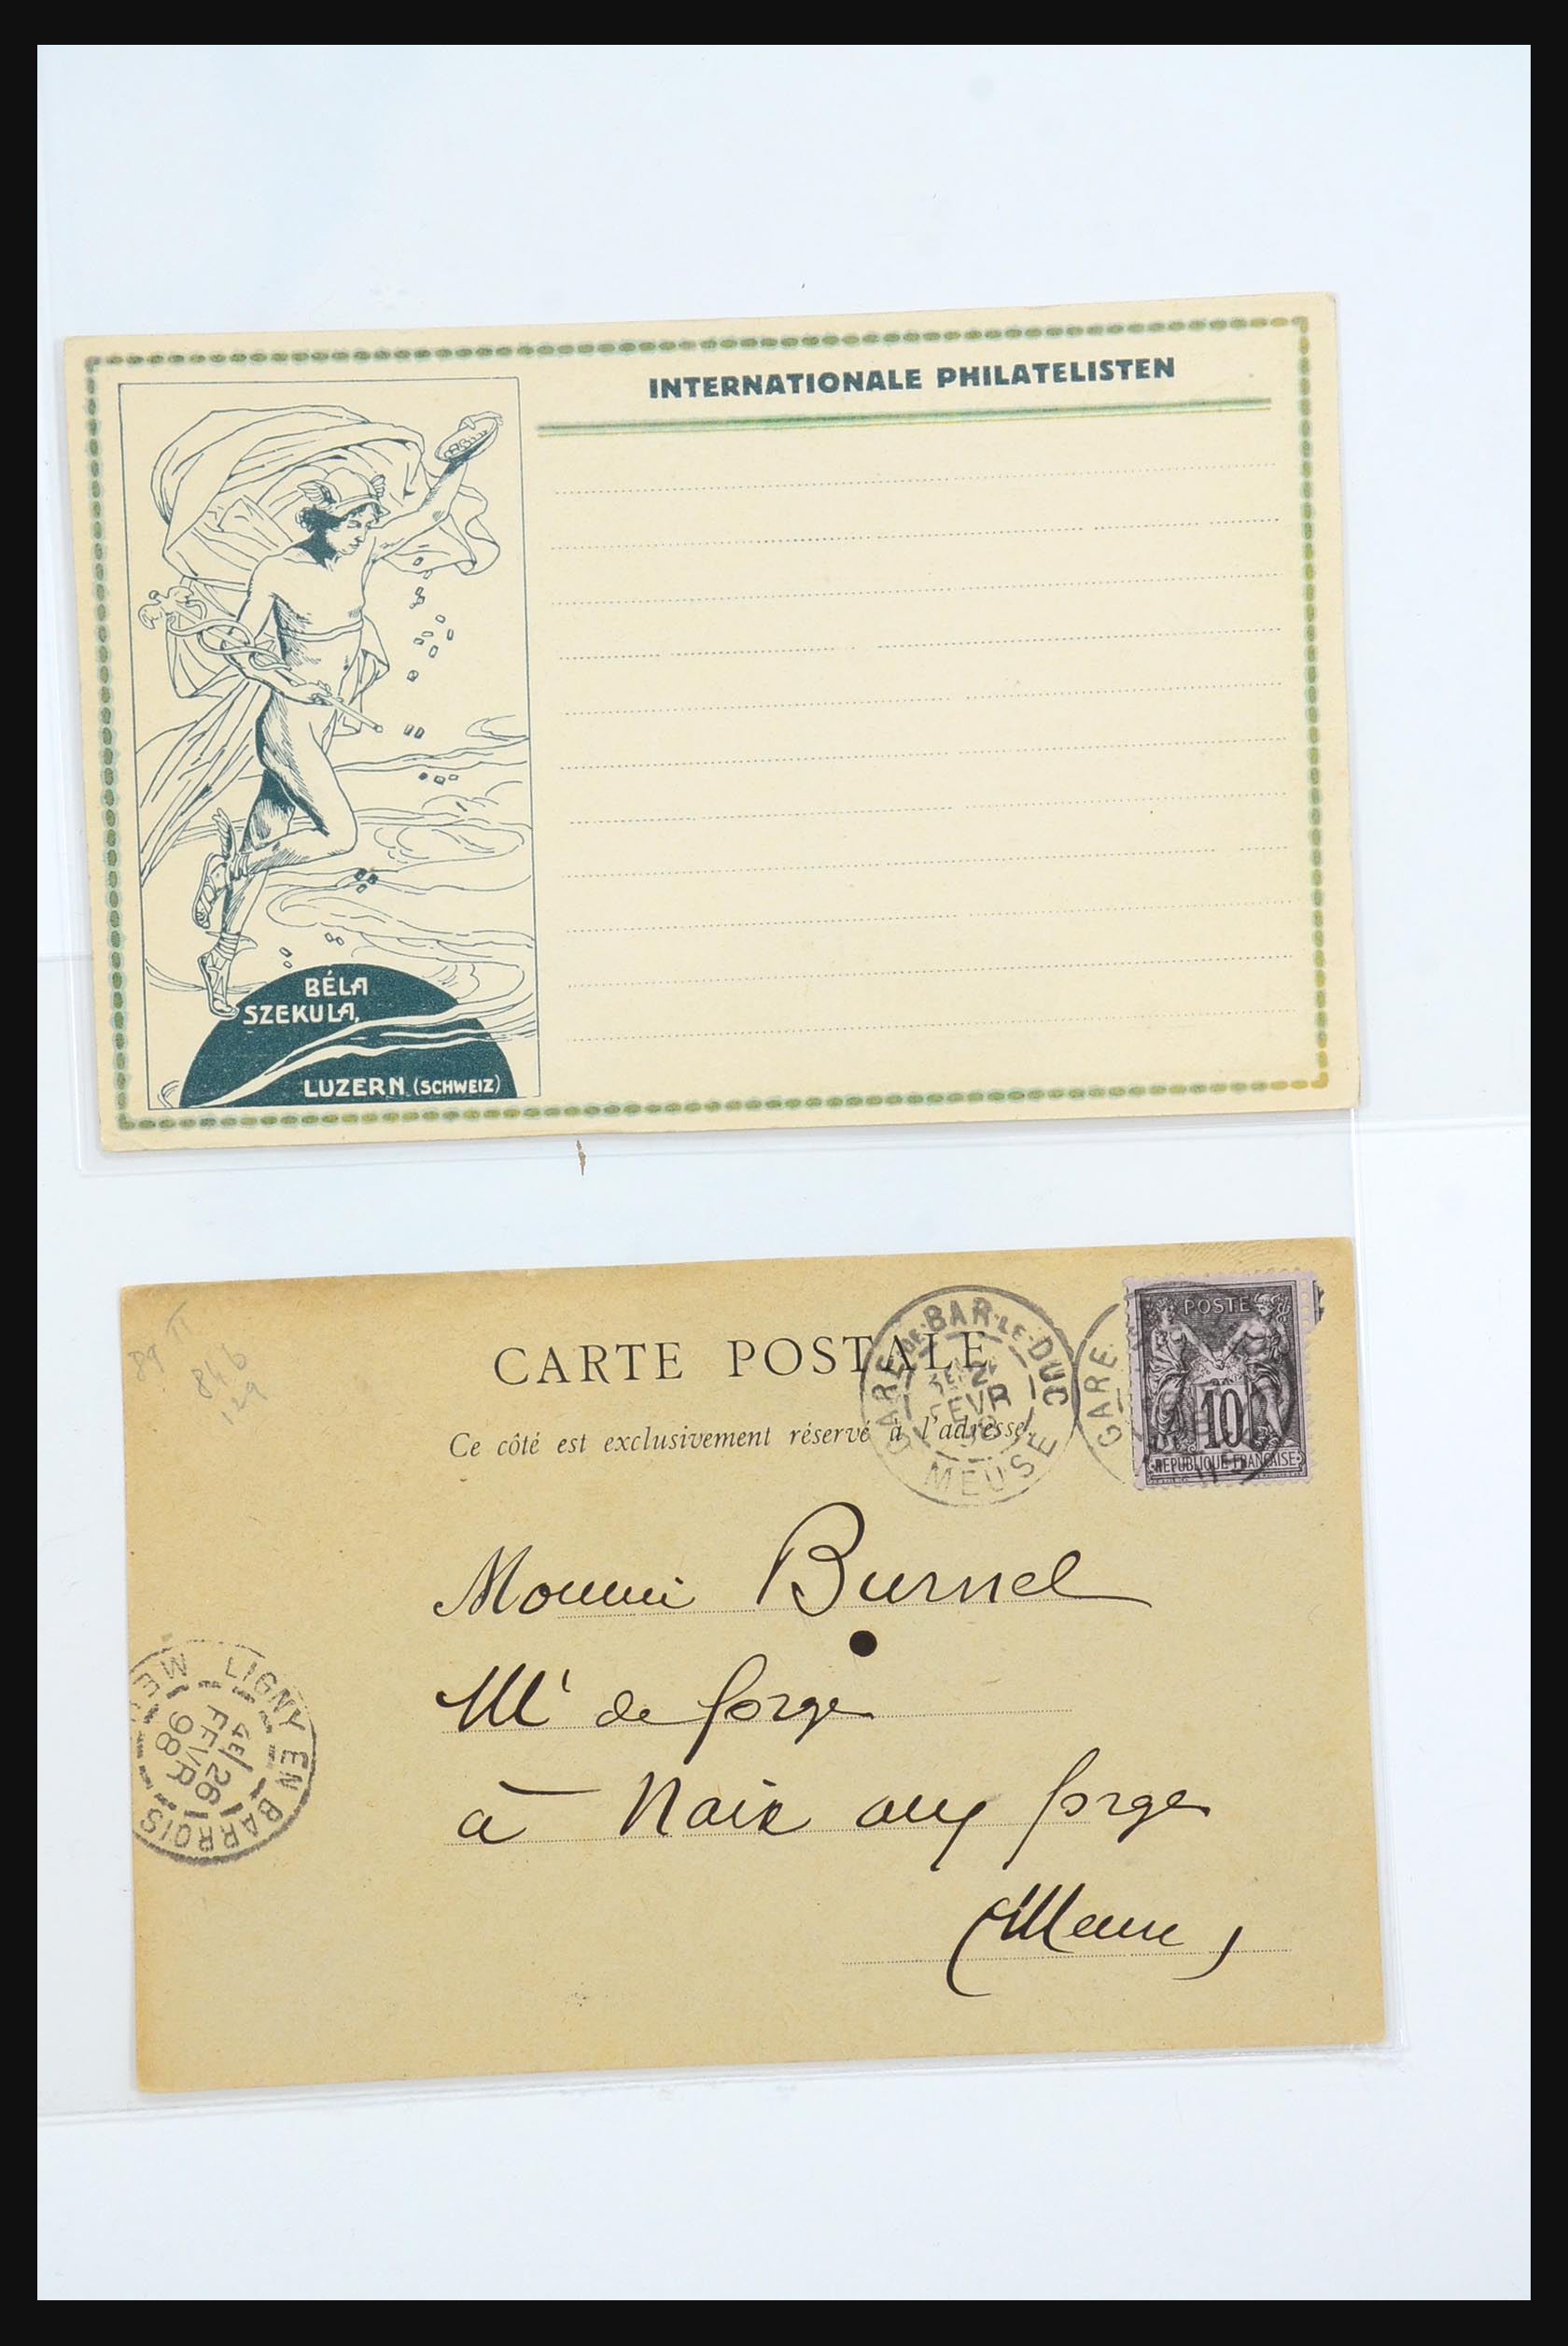 INTERNATIONALE PHILATELISTEN
BÉLA
SZEKULA,
LUZERN (SCHWEIZ)
CARTE POSTALE
Ce côté est exclusivement réservé à l'adresse.
GARE-DE-BAR-LE-DUC
FEVR
MEUSE
GARE
POSTE
10
REPUBLIQUE FRANÇAISE
89 II
84 b
129
Burnel
Mt de forge
à Naix aux forges
(Meuse)
LIGNY EN BARROIS
4E/26
FEVR
98